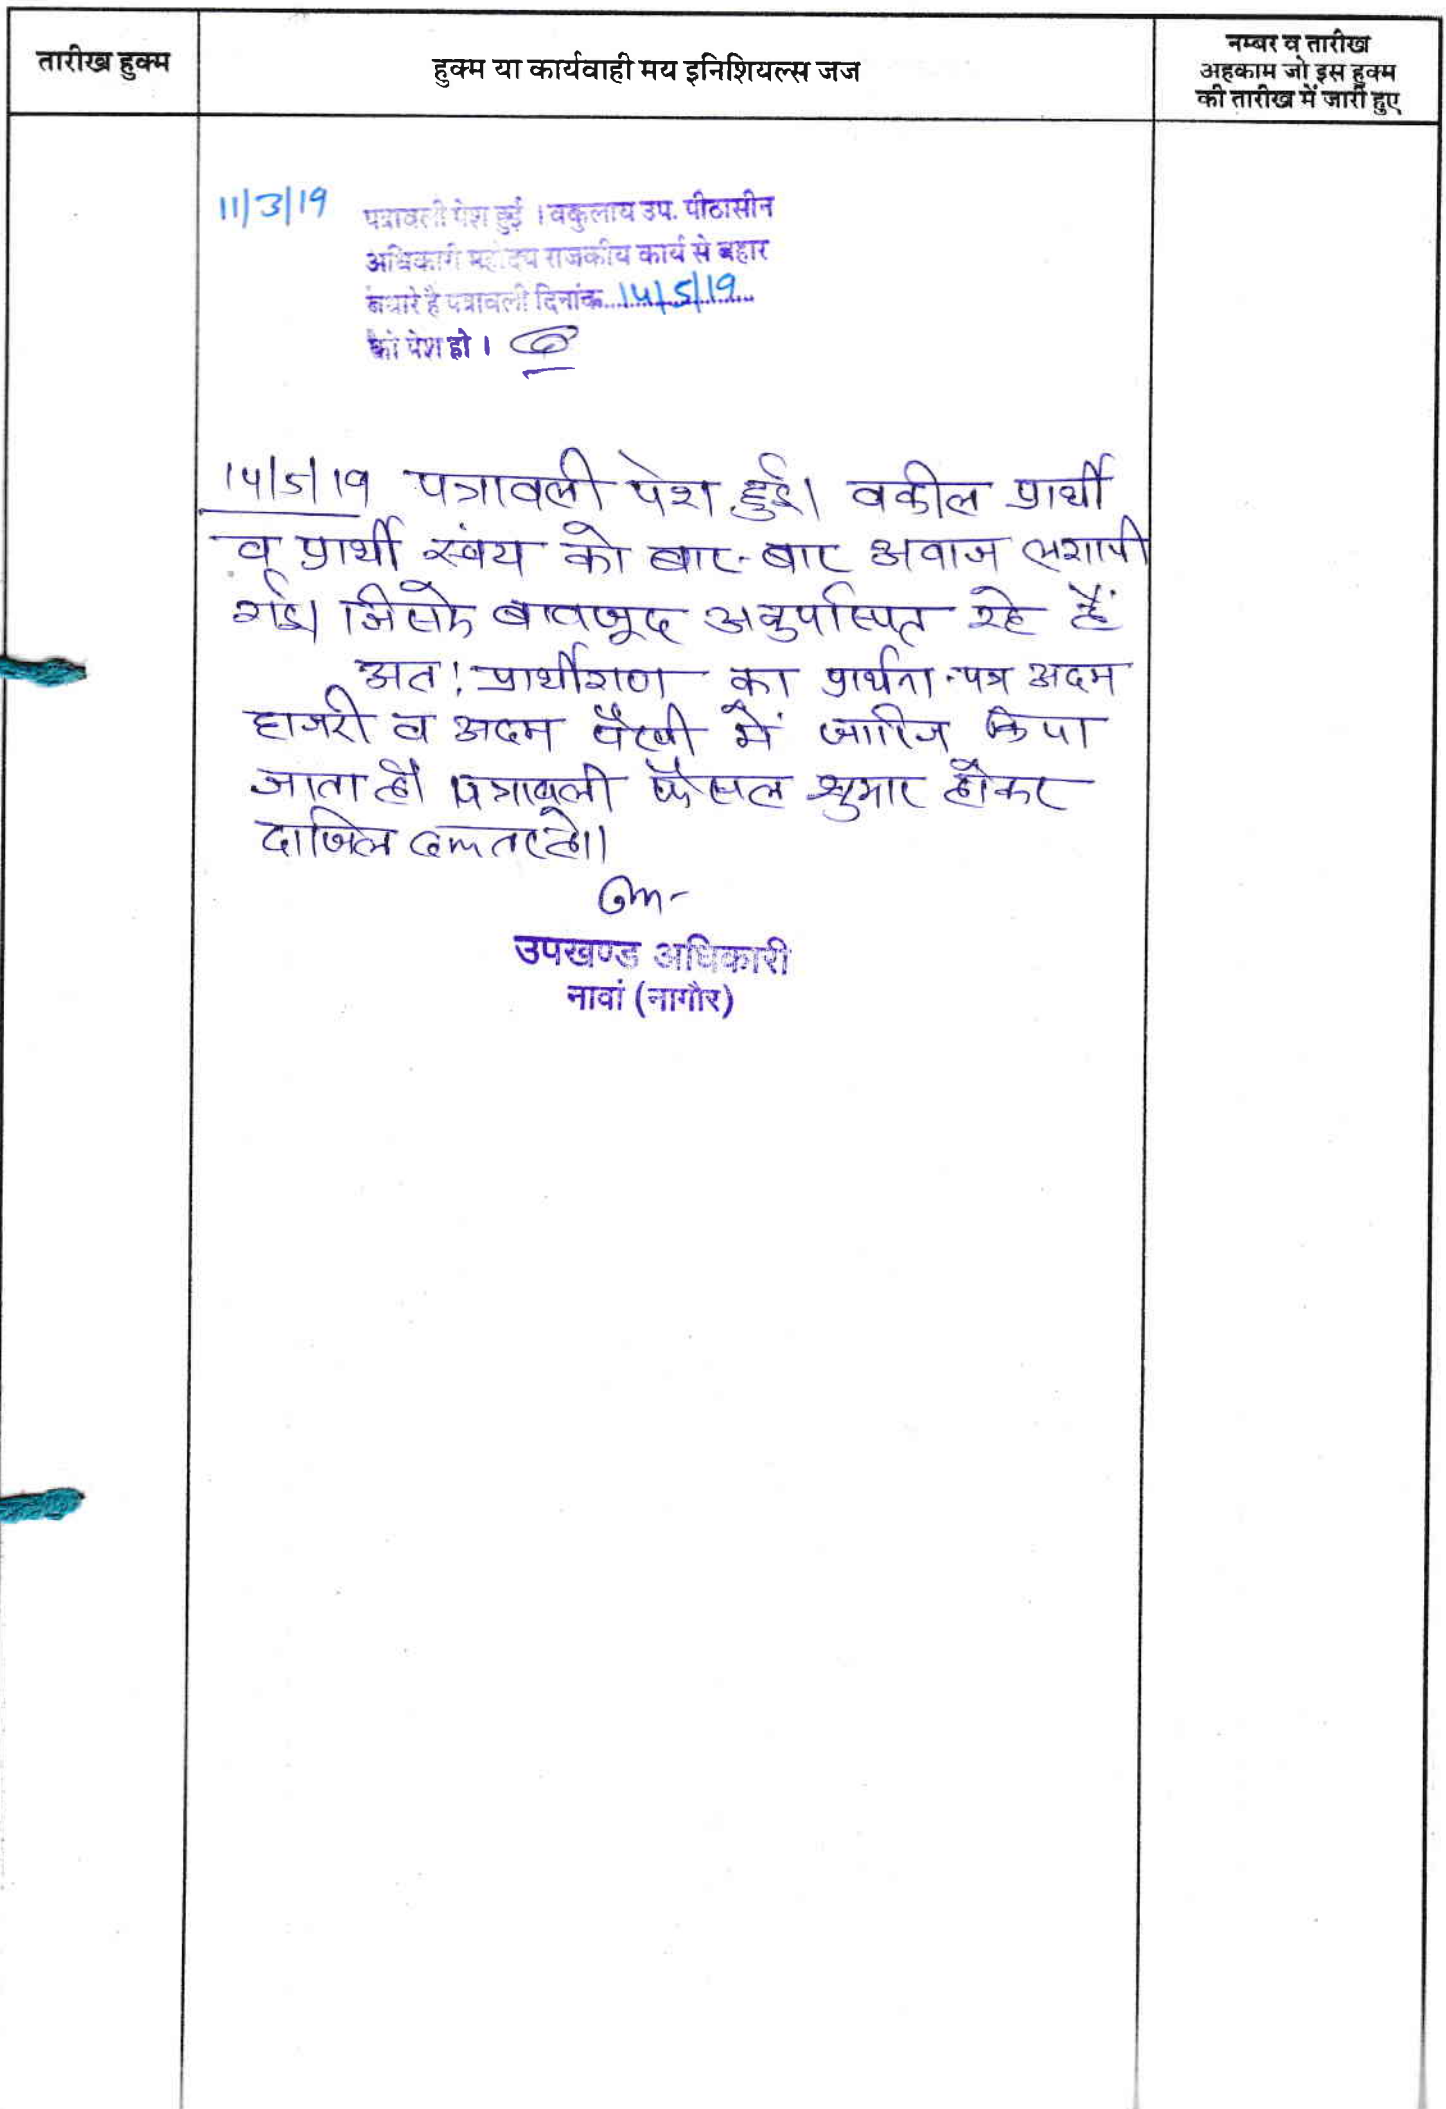 तारीख हुक्म
हुक्म या कार्यवाही मय इनिशियल्स जज
नम्बर व तारीख
अहकाम जो इस हुक्म
की तारीख में जारी हुए
11/3/19
पत्रावली पेश हुई । वकुलाय उप. पीठासीन
अधिकारी महोदय राजकीय कार्य से बहार
पधारे है पत्रावली दिनांक 14/5/19
को पेश हो ।
14/5/19 पत्रावली पेश हुई। वकील प्रार्थी
व प्रार्थी स्वंय को बार-बार अवाज लगायी
गई। जिसके बावजूद अनुपस्थित रहे हैं
अत: प्रार्थीगण का प्रार्थना-पत्र अदम
हाजरी व अदम पैरवी में खारिज किया
जाता है। पत्रावली फैसल शुमार होकर
दाखिल दफ्तर हो।
उपखण्ड अधिकारी
नावां (नागौर)